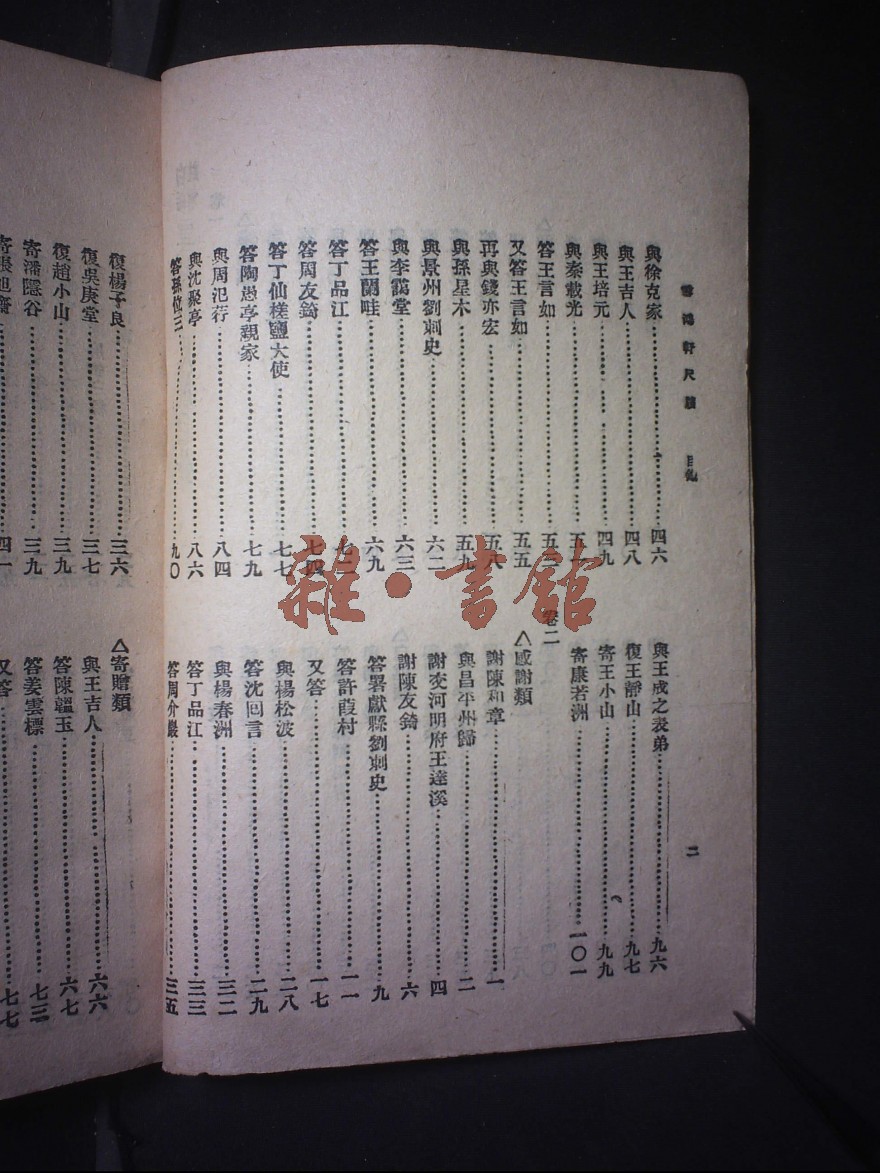 雪鴻軒尺牘 目錄 二
與徐克家 四六
與王吉人 四八
與王培元 四九
與秦載光 五
答王言如 五三
又答王言如 五五
再與錢亦宏 五八
與孫星木 五九
與景州劉刺史 六二
與李靄堂 六三
答王蘭畦 六九
答丁品江 七二
答周友錡 七四
答丁仙槎鹽大使 七七
答陶愚亭親家 七九
與周汜荇 八四
與沈聚亭 八六
答孫位三 九〇
與王成之表弟 九六
復王靜山 九七
寄王小山 九九
寄康若洲 一〇一
卷二
△感謝類
謝陳和章 一
與昌平州歸 二
謝交河明府王達溪 四
謝陳友錡 六
答署獻縣劉刺史 九
答許葭村 一一
又答 一七
與楊松波 二八
答沈囘言 二九
與楊春洲 三二
答丁品江 三三
答周介巖 三五
復楊子良 三六
復吳庚堂 三七
復趙小山 三九
寄潘隱谷 三九
寄張旭齋 四一
△寄贈類
與王吉人 六六
答陳韞玉 六七
答姜雲標 七三
又答 七七
雜·書館